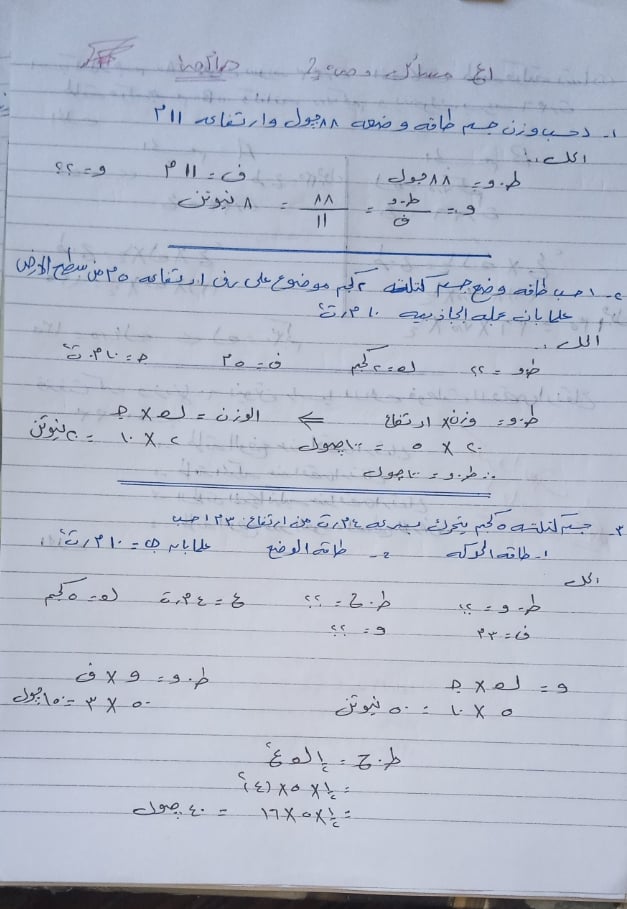 مسائل
١- احسب وزن جسم طاقه وضعه ٨٨ جول وارتفاعه ١١ م
الحل:
ط.و = ٨٨ جول ف = ١١ م و = ؟؟
و = ط.و / ف = ٨٨ / ١١ = ٨ نيوتن
٢- احسب طاقه وضع جسم كتلته ٢ كجم موضوع على رف ارتفاعه ٥ م من سطح الارض
علما بان عجله الجاذبيه ١٠ م/ث²
الحل:
ط.و = ؟؟ ك = ٢ كجم ف = ٥ م ج = ١٠ م/ث²
ط.و = وزن × ارتفاع ⇐ الوزن = ك × ج
٢٠ × ٥ = ١٠٠ جول ٢ × ١٠ = ٢٠ نيوتن
∴ ط.و = ١٠٠ جول
٣- جسم كتلته ٥ كجم يتحرك بسرعه ٤ م/ث من ارتفاع ٣ م احسب
١- طاقه الحركه ٢- طاقه الوضع علما بان ج = ١٠ م/ث²
الحل
ط.و = ؟؟ ط.ح = ؟؟ ع = ٤ م/ث ك = ٥ كجم
ف = ٣ م و = ؟؟
و = ك × ج ط.و = و × ف
٥ × ١٠ = ٥٠ نيوتن ٥٠ × ٣ = ١٥٠ جول
ط.ح = ½ ك ع²
= ½ × ٥ × (٤)²
= ½ × ٥ × ١٦ = ٤٠ جول